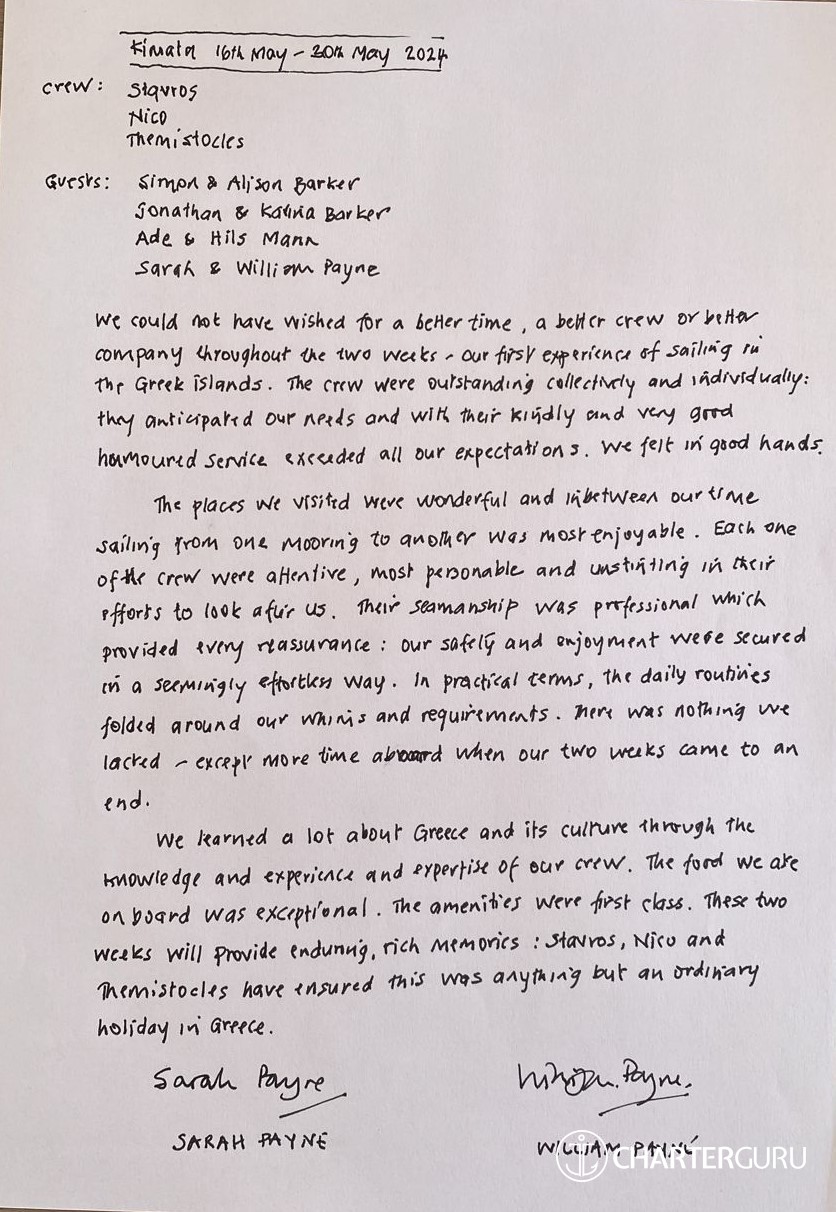 Kimata 16th May - 30th May 2024
Crew: Stavros
Nico
Themistocles
Guests: Simon & Alison Barker
Jonathan & Karina Barker
Ade & Hils Mann
Sarah & William Payne
We could not have wished for a better time, a better crew or better
company throughout the two weeks - our first experience of sailing in
the Greek islands. The crew were outstanding collectively and individually:
they anticipated our needs and with their kindly and very good
humoured service exceeded all our expectations. We felt in good hands.
The places we visited were wonderful and inbetween our time
sailing from one mooring to another was most enjoyable. Each one
of the crew were attentive, most personable and unstinting in their
efforts to look after us. Their seamanship was professional which
provided every reassurance: our safety and enjoyment were secured
in a seemingly effortless way. In practical terms, the daily routines
folded around our whims and requirements. There was nothing we
lacked - except more time aboard when our two weeks came to an
end.
We learned a lot about Greece and its culture through the
knowledge and experience and expertise of our crew. The food we ate
on board was exceptional. The amenities were first class. These two
weeks will provide enduring, rich memories: Stavros, Nico and
Themistocles have ensured this was anything but an ordinary
holiday in Greece.
Sarah Payne William Payne.
SARAH PAYNE WILLIAM PAYNE
CHARTERGURU